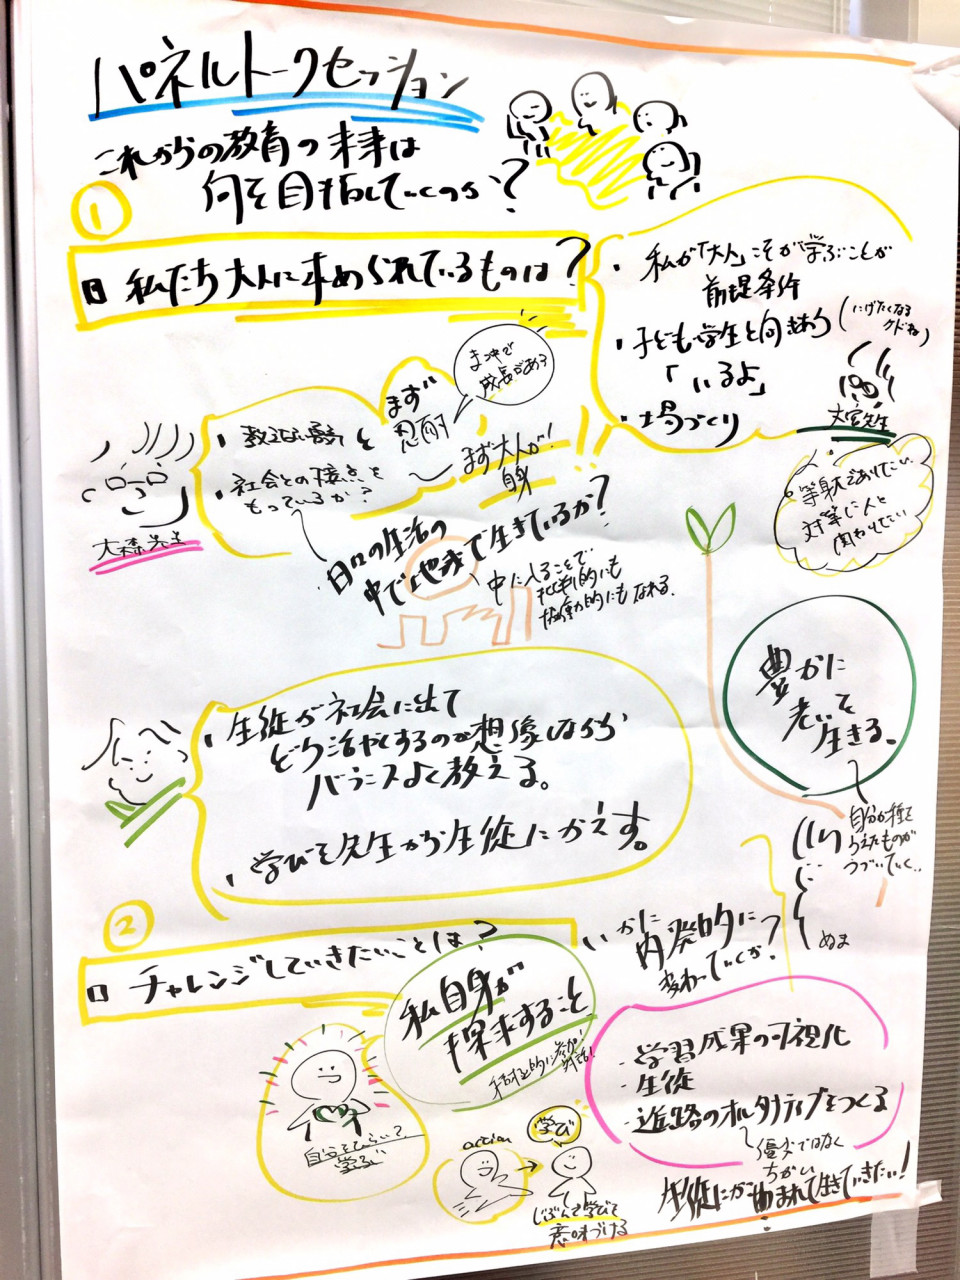 パネルトークセッション
これからの教育の未来は
何を目指していくのか?
①
私たち大人に求められているものは?
・私が「大人」こそが学ぶことが
前提条件
・子ども・学生と向きあう
(にげたくなる
クドさね)
「いるよ」
・場づくり
大宮先生
等身大でありたい
対等に人と
関わりたい
まず
忍耐
まつ中で
成長がある
・社会との接点を
もっているか?
まず大人が!
自身
大森先生
日々の生活の
中で地球で生きているか?
中に入ることで
批判的にも
協働的にもなれる.
豊かに
老いて
生きる。
自分が種を
うえたものが
つづいていく..
ぬま
・生徒が社会に出て
どう活やくするのか想像しながら
バランスよく教える。
・学びを先生から生徒にかえす。
②
チャレンジしていきたいことは?
いかに
内発的に
変わっていくか?
私自身が
探求すること
対話!
・学習成果の可視化
・生徒
・進路のオルタナティブをつくる
優劣ではなく
ちがい
生徒にかこまれて生きていきたい!
自分をひらいて
学ぶ
action
学び
じぶんで学びを
意味づける